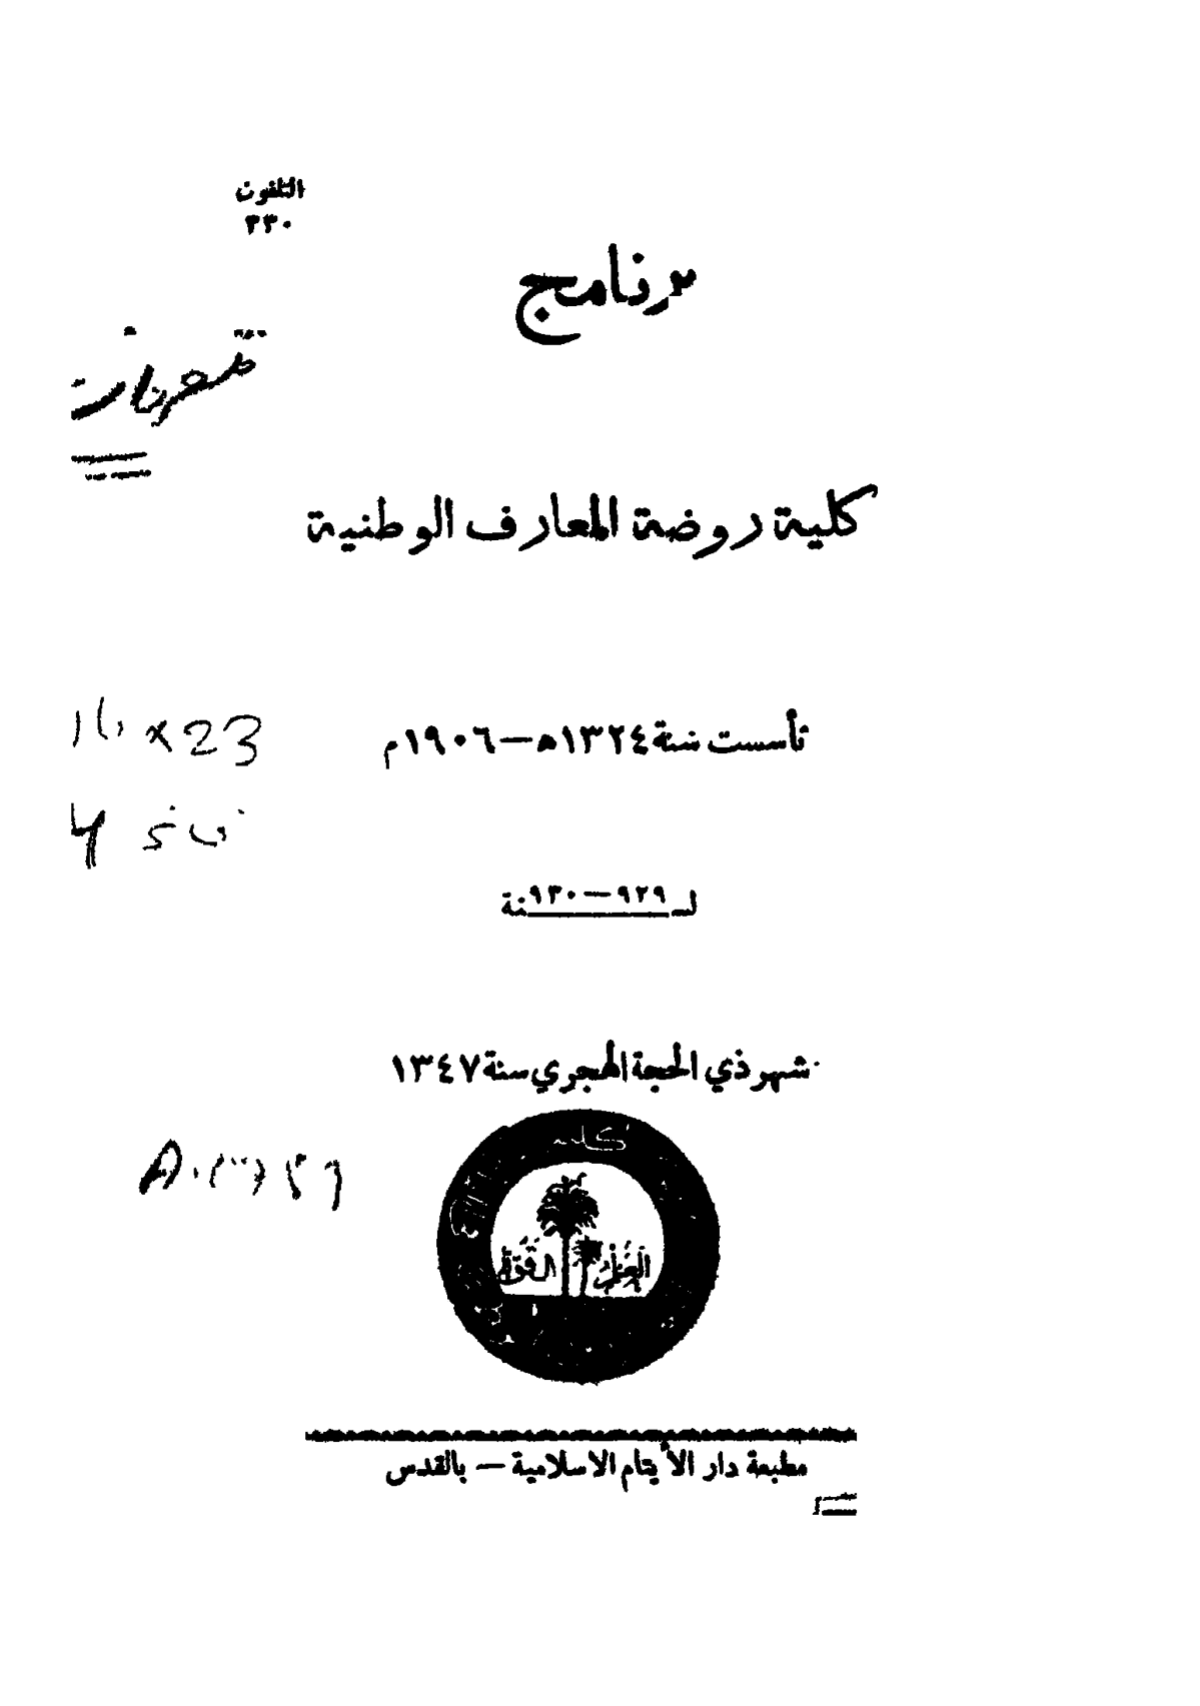 التلفون
٣٣٠
برنامج
كلية روضة المعارف الوطنية
x 23
تأسست سنة ١٣٢٤ه—١٩٠٦م
لسنة ٩٢٩—٩٣٠
شهر ذي الحجة الهجري سنة ١٣٤٧
كلية
العلم القوة
مطبعة دار الأيتام الاسلامية — بالقدس